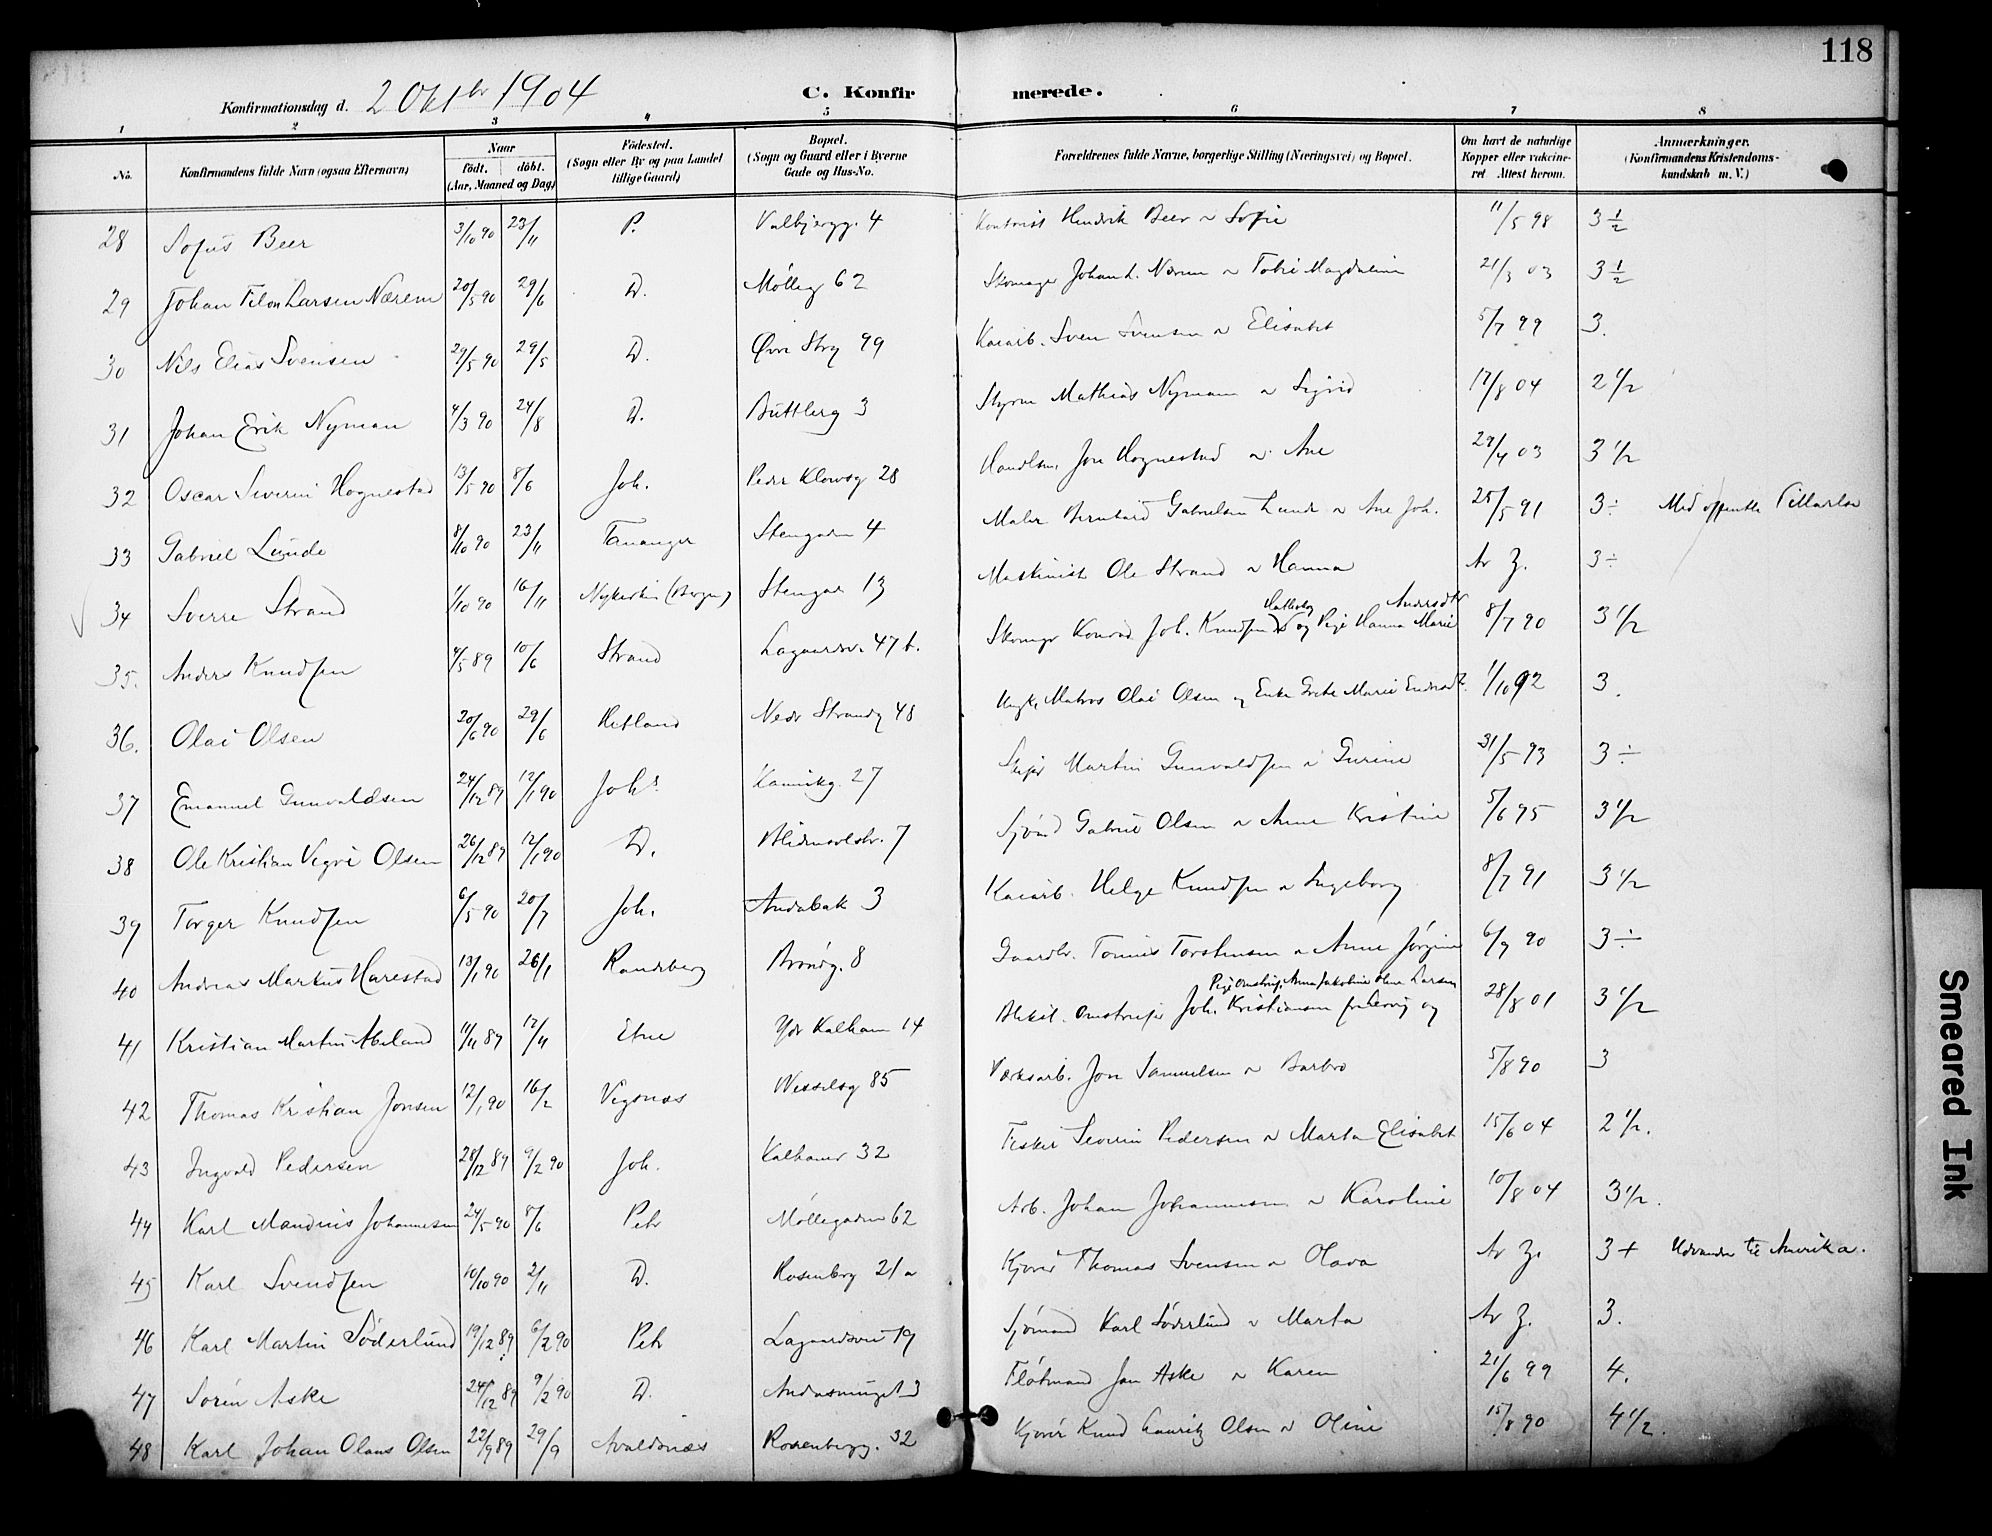 118
Konfirmationsdag d. 2 Oktbr 1904 C. Konfirmerede.
1 2 3 4 5 6 7 8
No. Konfirmandens fulde Navn (ogsaa Efternavn) Naar født. døbt. (Aar, Maaned og Dag) Födested. (Sogn eller By og paa Landet tillige Gaard) Bopæl. (Sogn og Gaard eller i Byerne Gade og Hus-No. Forældrenes fulde Navne, borgerlige Stilling (Næringsvei) og Bopæl. Om havt de naturlige Kopper eller vakcineret Attest herom. Anmærkninger. (Konfirmandens Kristendomskundskab m. V.)
28 Sofus Beer 3/10 90 23/11 P. Valbjergg. 4 Kontorist Hendrik Beer ~ Sofie 11/5 98 3 1/2
29 Johan Larsen Nærem 20/5 90 29/6 D. Mølleg 62 Skomager Johan L. Nærem ~ Magdalene 21/3 03 3 1/2
30 Nils Elias Svensen 29/5 90 29/5 D. Øvre Strg 99 Kaiarb. Sven Svensen ~ Elisabet 5/7 99 3.
31 Johan Erik Nyman 4/3 90 24/8 D. D. 3 Styrm Mathias Nyman ~ Sigrid 17/8 04 2 1/2
32 Oscar Severin Hognestad 13/5 90 8/6 Joh. Peder Klowsg 28 Handlsm. Jon Hognestad ~ Ane 29/4 03 3 1/2
33 Gabriel Lunde 8/10 90 23/11 Tananger Stengaden 4 Maler Bernhard Gabrielsen Lunde ~ Ane Joh. 25/5 91 3 ÷
34 Sverre Strand 1/10 90 16/11 Nykirken (Bergen) Stengaden 13 Maskinist Ole Strand ~ Hanna Av Z. 3 ÷
35. Anders Knudsen 4/5 89 10/6 Strand Lagaardsv. 47 b. Skomgr Konrad Joh. Knudsen og Pige Hanna Marie Andersdtr 8/7 90 3 1/2
36. Olai Olsen 20/6 90 29/6 Hetland Nedr Strandg 48 Ungk. Matros Olai Olsen og Enke Grete Marie 1/10 92 3.
37 Emanuel Gunvaldsen 24/12 89 12/1 90 Joh. Kannikg. 27 Martin Gunvaldsen ~ Gurine 31/5 93 3 ÷
38 Ole Kristian Olsen 26/12 89 12/1 90 D. Blidensolstr. 7 Sjømd Gabriel Olsen ~ Anne Kristine 5/6 95 3 1/2
39 Torger Knudsen 6/5 90 20/7 Joh. Andabak 3 Kaiarb. Helge Knudsen ~ Ingeborg 8/7 91 3 1/2
40 Andreas Markus Harestad 13/1 90 26/1 Randeberg Brøndg. 8 Gaardbr. Tønnes Torstensen ~ Anne Jørgine 6/9 90 3 ÷
41 Kristian Martin Abeland 11/11 89 17/11 Etne Ydr Kalham 14 Joh. Kristiansen fra Lervig og Pige Anna Jakobine Oline Larsen 28/8 01 3 1/2
42 Thomas Kristian Jonsen 12/1 90 16/2 Vigsnæs Wesselsg 85 Værksarb. Jon Samuelsen ~ Barbro 5/8 90 3
43 Ingvald Pedersen 28/12 89 9/2 90 Joh. Kalhamr 32 Fisker Severin Pedersen ~ Marta Elisabet 15/6 04 2 1/2.
44 Karl Mandius Johannesen 24/5 90 8/6 Petr Møllegaden 62 Arb. Johan Johannesen ~ Karoline 10/8 04 3 1/2.
45 Karl Svendsen 10/10 90 2/11 D. Rosenberg 21 a Kjører Thomas Svensen ~ Olava Av Z. 3 + Udvander til Amerika.
46 Karl Martin Söderlund 19/12 89 6/2 90 Petr Lagaardsvei 19 Sjømand Karl Söderlund ~ Marta Av Z. 3.
47 Sören Aske 24/12 89 9/2 90 D. Andasmuget 3 Fløtmand Jon Aske ~ Karen 21/6 99 4.
48 Karl Johan Olaus Olsen 22/9 89 29/9 Avaldsnæs Rosenbergg. 32 Kjører Knud Lauritz Olsen ~ Oline 15/8 90 4 1/2.
Smeared Ink